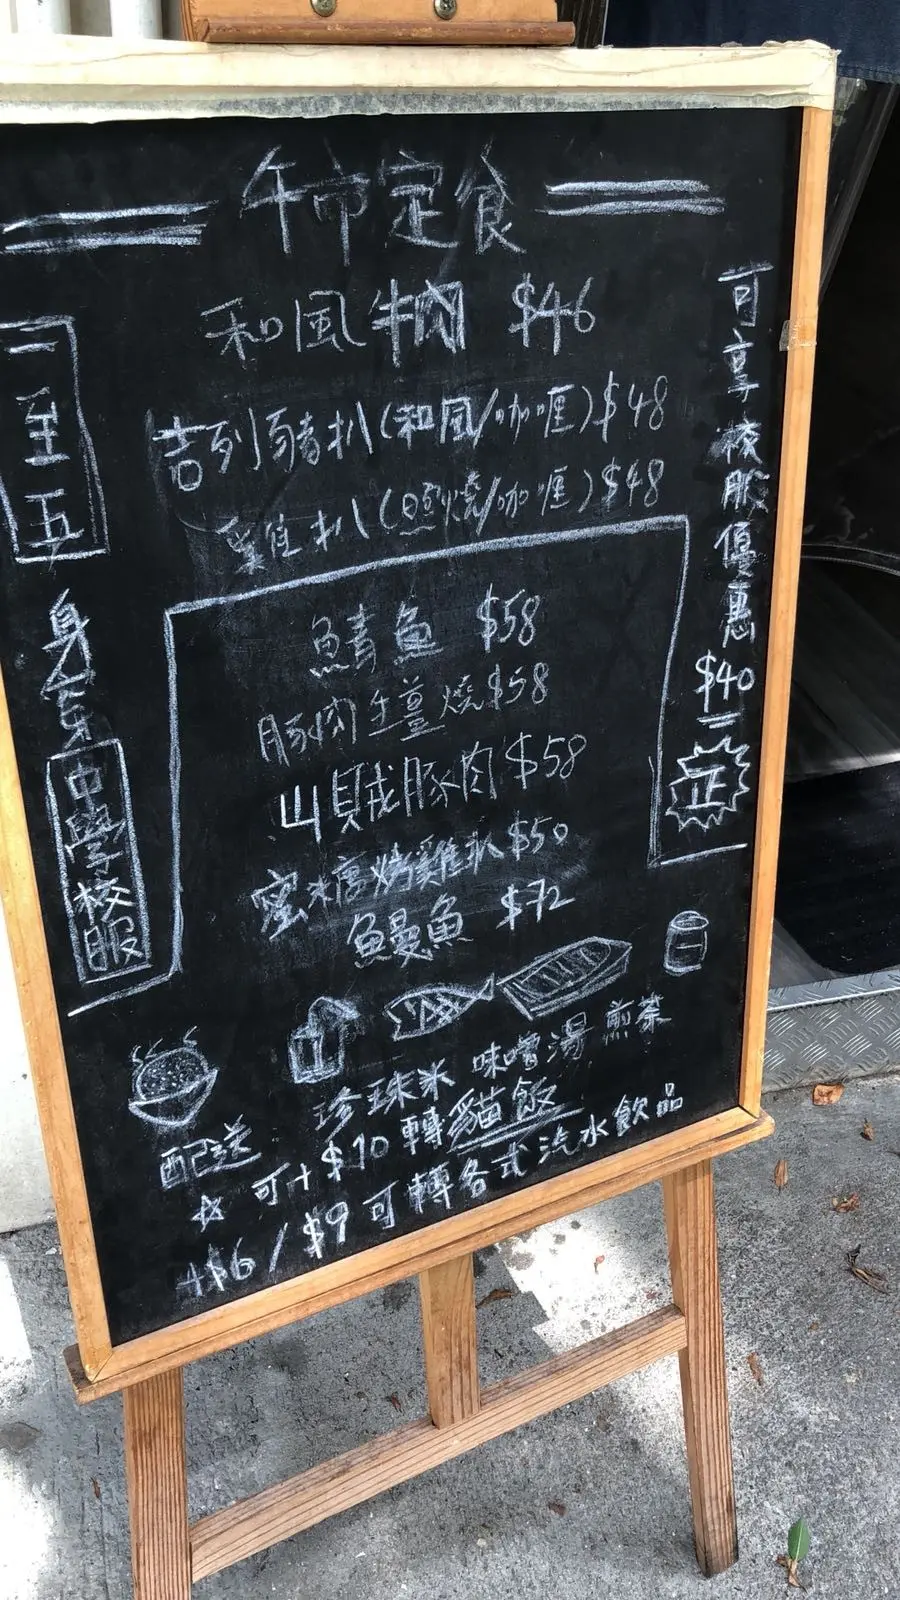 午市定食
和風牛肉 $46
吉列豬扒(和風/咖喱)$48
雞扒(照燒/咖喱)$48
鯖魚 $58
豚肉生薑燒$58
山賊豚肉$58
蜜糖烤雞扒$50
鰻魚 $72
一至五
身穿
中學校服
可享校服優惠
$40
正
配送
珍珠米 味噌湯 煎茶
☆ 可+$10轉貓飯
+$6/$9可轉各式汽水飲品